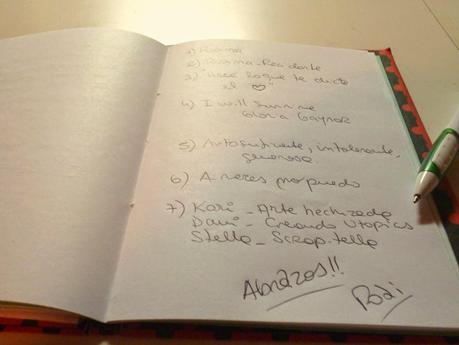 2)
3) "Hace lo que te dicte
el ♡"
4) I will Survive
Gloria Gaynor
5) Autosuficiente, intolerante,
generosa.
6) A veces puedo
7) Kari - Arte hechizado
Dani - Creando Utopias
Stella - Scrap-tella
Abrazos!!